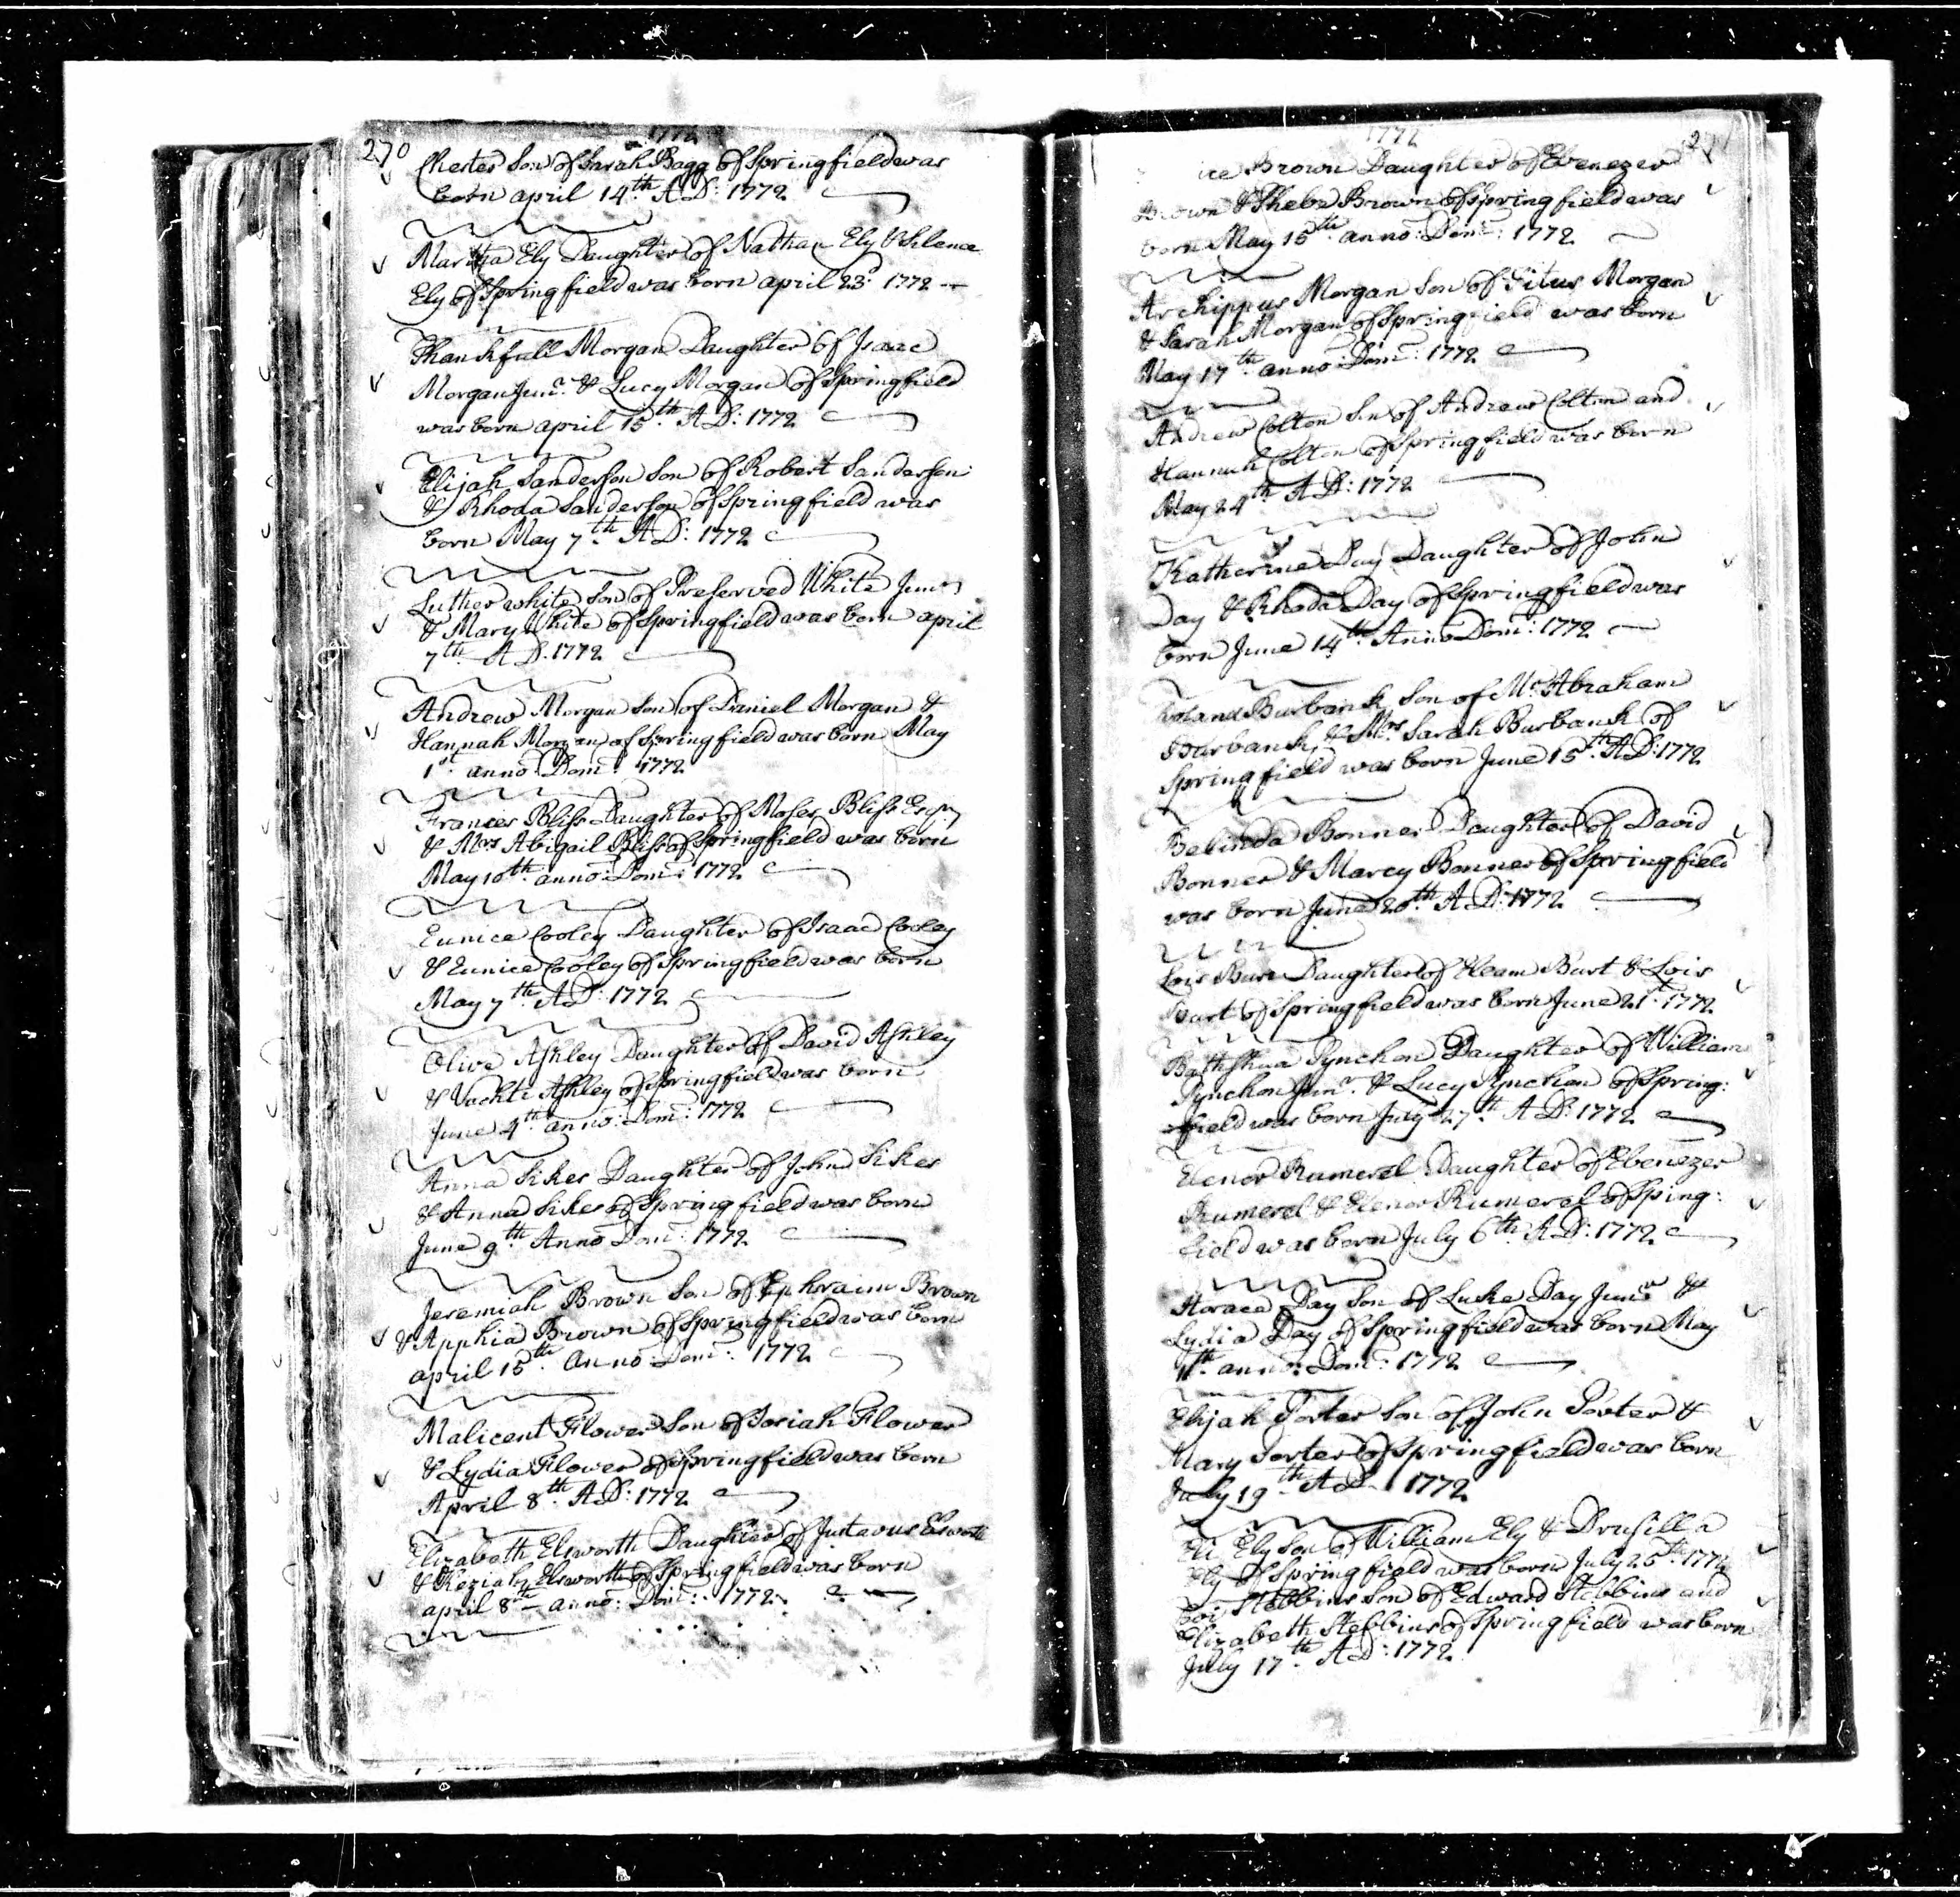 1772
270
Chester Son of Sarah Bagg of Springfield was
born april 14th A.D: 1772
Martha Ely Daughter of Nathan Ely &
Ely of Springfield was born april 23d 1772
Thankfull Morgan Daughter of Isaac
Morgan Junr. & Lucy Morgan of Springfield
was born april 15th. A.D: 1772
Elijah Sanderson Son of Robert Sanderson
& Rhoda Sanderson of Springfield was
born May 7th A.D: 1772
Luther white Son of Preserved White Junr
& Mary White of Springfield was born april
7th A.D. 1772
Andrew Morgan Son of Daniel Morgan &
Hannah Morgan of Springfield was born May
1st. anno: Dom: 1772
Frances Bliss Daughter of Moses Bliss Esqr
& Mrs Abigail Bliss of Springfield was born
May 10th. anno: Dom: 1772
Eunice Cooley Daughter of Isaac Cooley
& Eunice Cooley of Springfield was born
May 7th A.D: 1772
Olive Ashley Daughter of David Ashley
& Vachti Ashley of Springfield was born
June 4th. anno: Dom: 1772
Anna Sikes Daughter of John Sikes
& Anna Sikes of Springfield was born
June 9th. Anno Dom: 1772
Jeremiah Brown Son of Ephraim Brown
& Apphia Brown of Springfield was born
april 15th. anno: Dom: 1772
Malicent Flower Son of Josiah Flower
& Lydia Flower of Springfield was born
April 8th. A.D: 1772
Elizabeth Elsworth Daughter of Justavus Elsworth
& Keziah Elsworth of Springfield was born
april 8th anno: Dom: 1772
1772
Brown Daughter of Ebenezer
Brown & Phebe Brown of Springfield was
born May 15th anno: Dom: 1772
Archippus Morgan Son of Titus Morgan
& Sarah Morgan of Springfield was born
May 17th anno: Dom: 1772
Andrew Colton Son of Andrew Colton and
Hannah Colton of Springfield was born
May 24th A.D: 1772
Katherine Day Daughter of John
Day & Rhoda Day of Springfield was
born June 14th Anno Dom: 1772
Roland Burbank Son of Mr Abraham
Burbank, & Mrs. Sarah Burbank of
Springfield was born June 15th A.D: 1772
Belinda Bonner Daughter of David
Bonner & Marcy Bonner of Springfield
was born June 20th A.D: 1772
Lois Burt Daughter of Burt & Lois
Burt of Springfield was born June 21st 1772
Bathshua Pynchon Daughter of William
Pynchon Junr. & Lucy Pynchon of Spring:
field was born July 27th A.D: 1772
Elenor Rumerel Daughter of Ebenezer
Rumerel & Elenor Rumerel of Sping:
field was born July 6th A.D: 1772
Horace Day Son of Luke Day Junr &
Lydia Day of Springfield was born May
anno: Dom: 1772
Elijah Porter Son of John Porter &
Mary Porter of Springfield was born
July 19th A.D 1772
Eli Ely Son of William Ely & Drusilla
Ely of Springfield was born July 25th 1772
Stebbins Son of Edward Stebbins and
Elizabeth Stebbins of Springfield was born
July 17th A.D: 1772